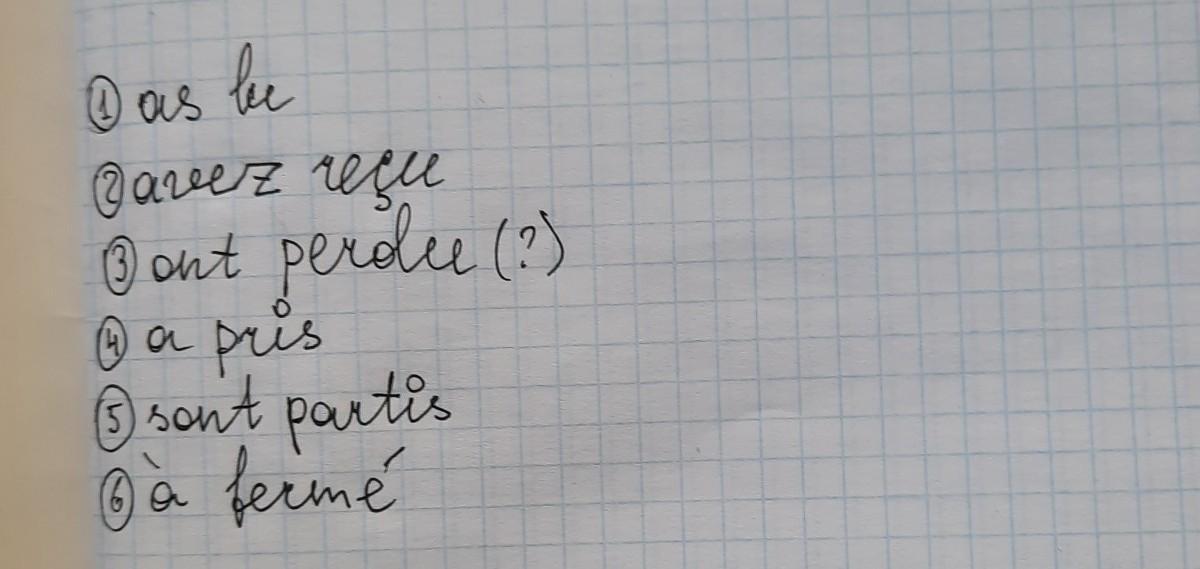 ① as lu
② avez reçu
③ ont perdu (?)
④ a pris
⑤ sont partis
⑥ à fermé